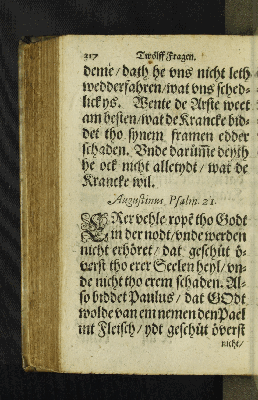 317 Twölff Fragen.
deme / dath he vns nicht leth
wedderfahren / wat vns sched-
lick ys. Wente de Arste weet
am besten / wat de Krancke bid-
det tho synem framen edder
schaden. Vnde darüm̄e deyth
he ock nicht alletydt / wat de
Krancke wil.
Augustinus, Psalm. 21.
ERer vehle ropẽ tho Godt
in der nodt / vnde werden
nicht erhöret / dat geschüt ö-
verst tho erer Seelen heyl / vn-
de nicht tho erem schaden. Al-
so biddet Paulus / dat GOdt
wolde van em nemen den Pael
int Fleisch / ydt geschüt överst
nicht /